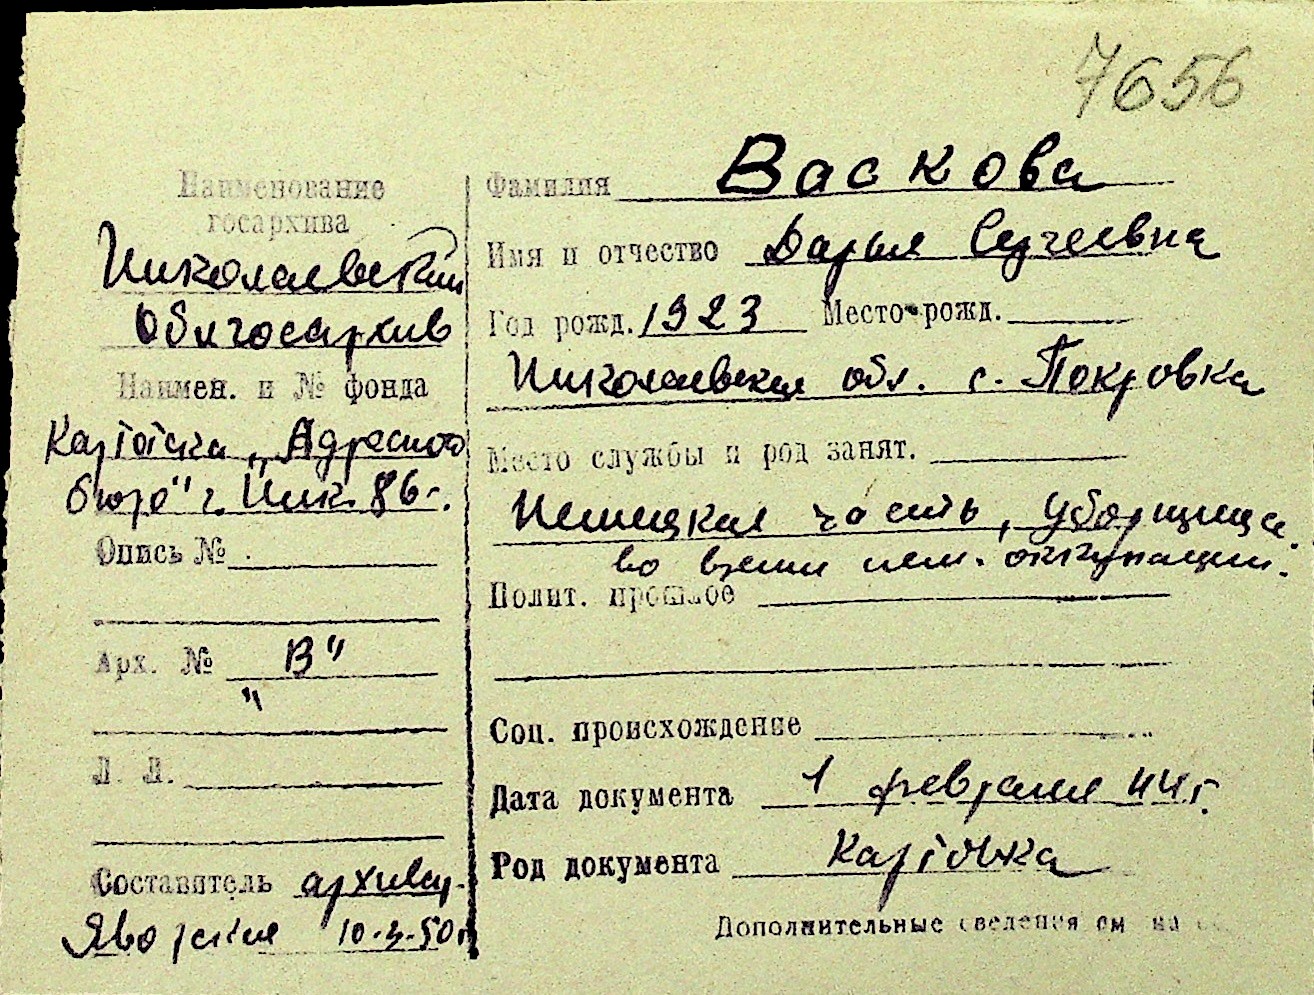 7656
Наименование
госархива
Николаевский
Облгосархив
Наимен. и № фонда
Картотека „Адресного
бюро" г. Ник.
Опись №
Арх. № В"
"
Л. Л.
Составитель архивар.
Яворская 10.4.50г
Фамилия Васкова
Имя и отчество Дарья Сергеевна
Год рожд. 1923 Место рожд.
Николаевская обл. с. Покровка
Место службы и род занят.
Немецкая часть, уборщица
во время нем. оккупации.
Полит. прошлое
Соц. происхождение
Дата документа 1 февраля 44г.
Род документа Карточка
Дополнительные сведения см на